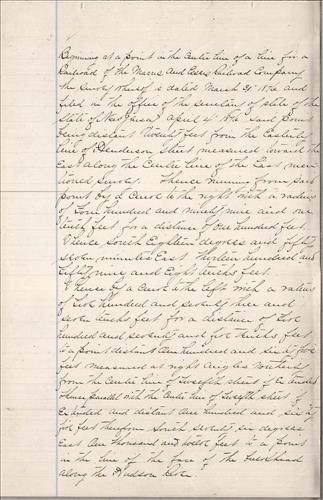 Beginning at a point in the Centre line of a line for a
Railroad of the Morris and Essex Railroad Company
the Survey whereof is dated March 31st 1876 and
filed in the office of the Secretary of State of the
State of New Jersey April 4th 1876 said Point
being distant Twenty feet from the Easterly
line of Henderson Street measured toward the
East along the Centre line of the last men
tioned Survey. Thence running from said
point by a Curve to the right with a radius
of Four hundred and ninety nine and one
tenth feet for a distance of One hundred feet.
Thence South Eighteen degrees and fifty
seven minutes East Thirteen hundred and
Eighty nine and Eight tenths feet.
Thence by a Curve to the left with a radius
of Five hundred and seventy three and
seven tenths feet for a distance of Five
hundred and seventy and five tenths feet
to a point distant One hundred and sixty five
feet measured at right Angles Northerly
from the Centre line of Twelfth street if Extended
Thence parallel with the Centre line of Twelfth street if
Extended and distant One hundred and sixty
five feet therefrom South seventy six degrees
East One thousand and twelve feet to a point
in the line of the face of the bulkhead
along the Hudson River